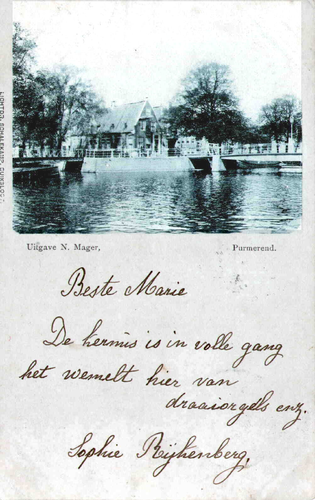 Uitgave N. Mager,
Purmerend.
Beste Marie
De kermis is in volle gang
het wemelt hier van
draaiorgels enz.
Sophie Rijkenberg,